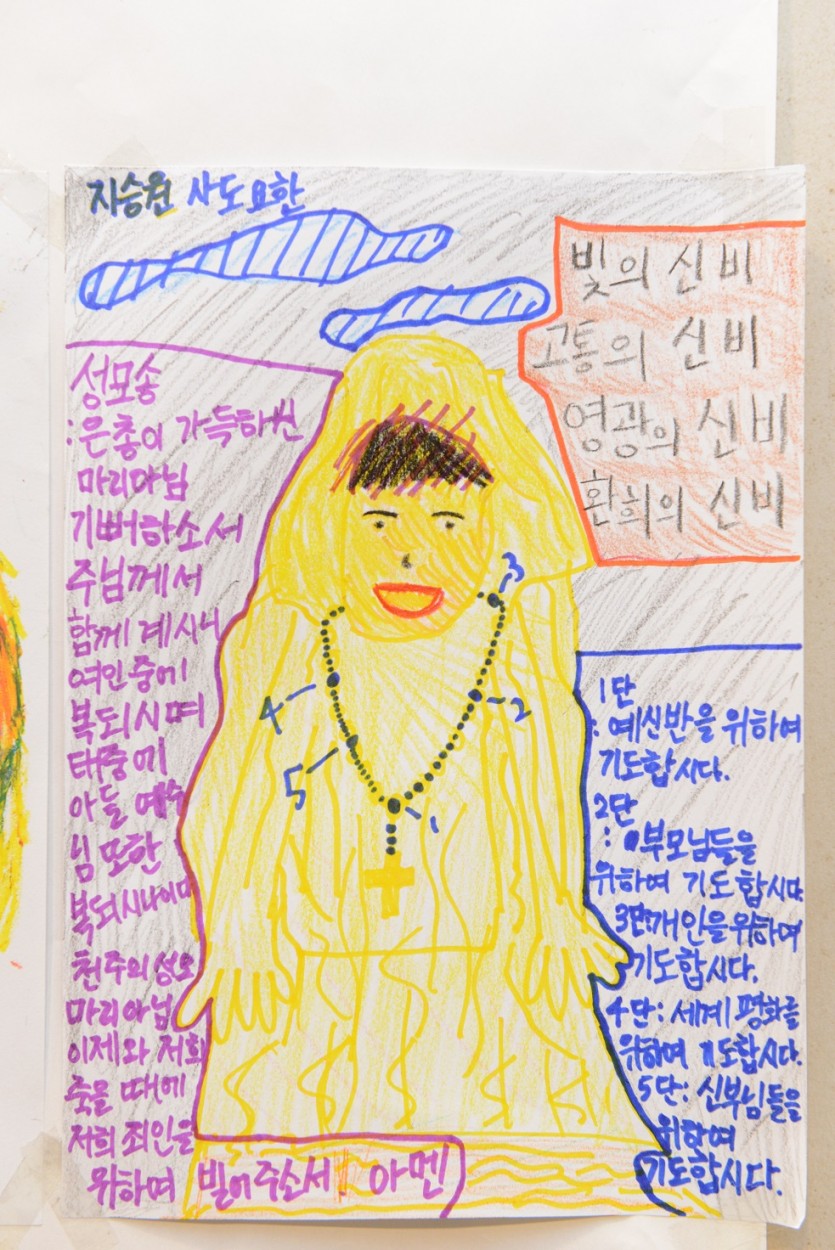 지승원 사도요한
빛의 신비
고통의 신비
영광의 신비
환희의 신비
성모송
:은총이 가득하신
마리아님
기뻐하소서
주님께서
함께 계시니
여인중에
복되시며
태중에
아들 예수
님 또한
복되시나이다
천주의 성모
마리아님
이제와 저희
죽을 때에
저희 죄인을
위하여 빌어주소서! 아멘
3
4
2
5
1
1단
: 예신반을 위하여
기도합시다.
2단
: 부모님들을
위하여 기도합시다
3단:개인을위하여
기도합시다.
4단: 세계 평화를
위하여 기도합시다.
5단: 신부님들을
위하여
기도합시다.